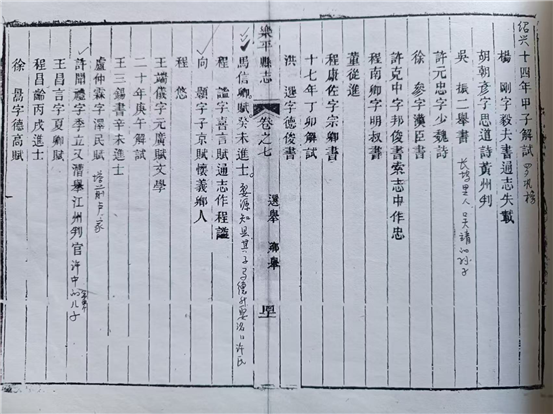 绍兴十四年甲子解試 罗巩榜
楊 剛字毅夫書通志失載
胡朝彦字思道詩黃州判
吳 振二舉書 长城里人吴請的孙子
許元忠字少魏詩
徐 參字漢臣書
許克中字邦俊書索志中作忠
程南卿字明叔書
程康佐字宗卿書
董從進
十七年丁卯解試
洪 遜字德俊書
樂平縣志 卷之七 選舉 鄉舉
馬信卿賦癸未進士 婺源知县其子马
程 謐字喜言賦通志作程謐
向 顯字子京賦懷義鄉人
程 悠
王端儀字元廣賦文學
二十年庚午解試
王三錫書辛未進士
盧仲霖字澤民賦 塔前卢家
許開禮字季立又漕舉江州判官 许中的儿子
王昌言字夏卿賦
程昌齡丙戌進士
徐 暠字德高賦